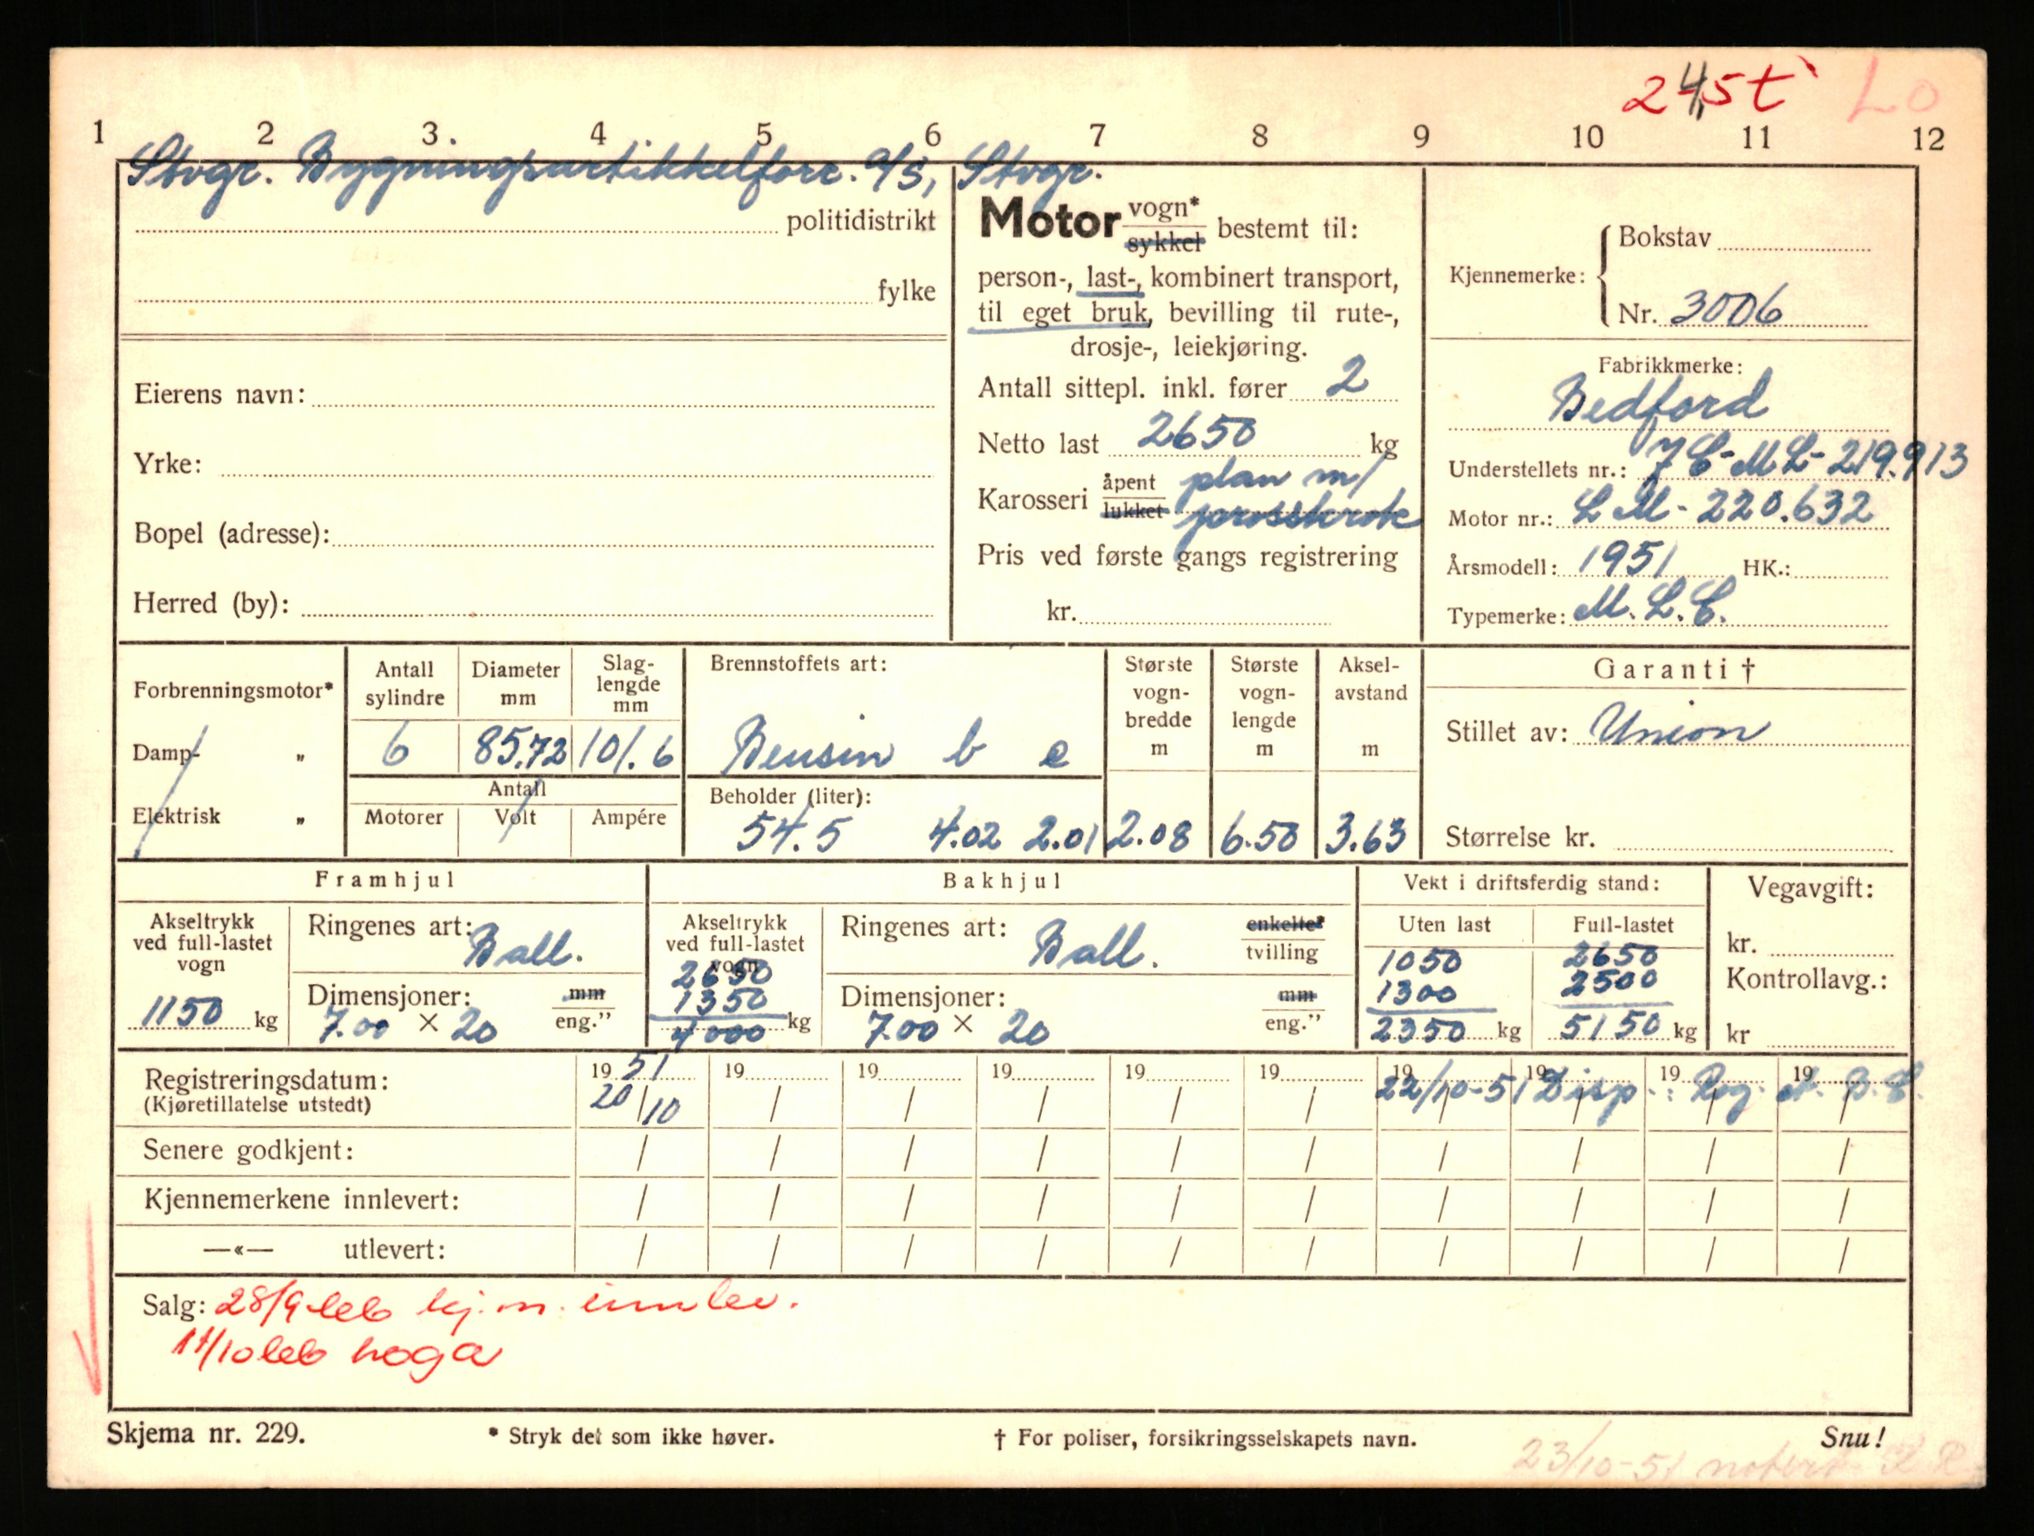 24,5 t Lo
1 2 3. 4 5 6 7 8 9 10 11 12
Stvgr. Bygningsartikkelforr. a/s, Stvgr.
politidistrikt
fylke
Eierens navn:
Yrke:
Bopel (adresse):
Herred (by):
Motor vogn* sykkel bestemt til:
person-, last-, kombinert transport,
til eget bruk, bevilling til rute-,
drosje-, leiekjøring.
Antall sittepl. inkl. fører 2
Netto last 2650 kg
Karosseri åpent lukket plan m/
Pris ved første gangs registrering
kr.
Kjennemerke: Bokstav
Nr. 3006
Fabrikkmerke:
Bedford
Understellets nr.: 7 C-ML-219.913
Motor nr.: LM-220.632
Årsmodell: 1951 HK.:
Typemerke: M.L.C.
Forbrenningsmotor*
Damp- "
Elektrisk "
Antall sylindre
6
Diameter mm
85,72
Slag-lengde mm
101.6
Antall
Motorer Volt Ampére
Brennstoffets art:
Bensin b e
Beholder (liter):
54.5 4.02 2.01
Største vogn-bredde m
2.08
Største vogn-lengde m
6.50
Aksel-avstand m
3.63
Garanti †
Stillet av: Union
Størrelse kr.
Framhjul
Akseltrykk ved full-lastet vogn
1150 kg
Ringenes art: Ball.
Dimensjoner: mm eng."
7.00 × 20
Bakhjul
Akseltrykk ved full-lastet vogn
2650
1350
4000 kg
Ringenes art: Ball. enkelte* tvilling
Dimensjoner: mm eng."
7.00 × 20
Vekt i driftsferdig stand:
Uten last
1050
1300
2350 kg
Full-lastet
2650
2500
5150 kg
Vegavgift:
kr.
Kontrollavg.:
kr
Registreringsdatum: 19 51 19 19 19 19 19 19 19 19 19
(Kjøretillatelse utstedt) 20/10 / / / / / 22/10-51 Disp.: Reg.
Senere godkjent: / / / / / / / / / /
Kjennemerkene innlevert: / / / / / / / / / /
—«— utlevert: / / / / / / / / / /
Salg: 28/9-66 kj.m. innlev.
Skjema nr. 229. * Stryk det som ikke høver. † For poliser, forsikringsselskapets navn. Snu!
23/10-51 notert